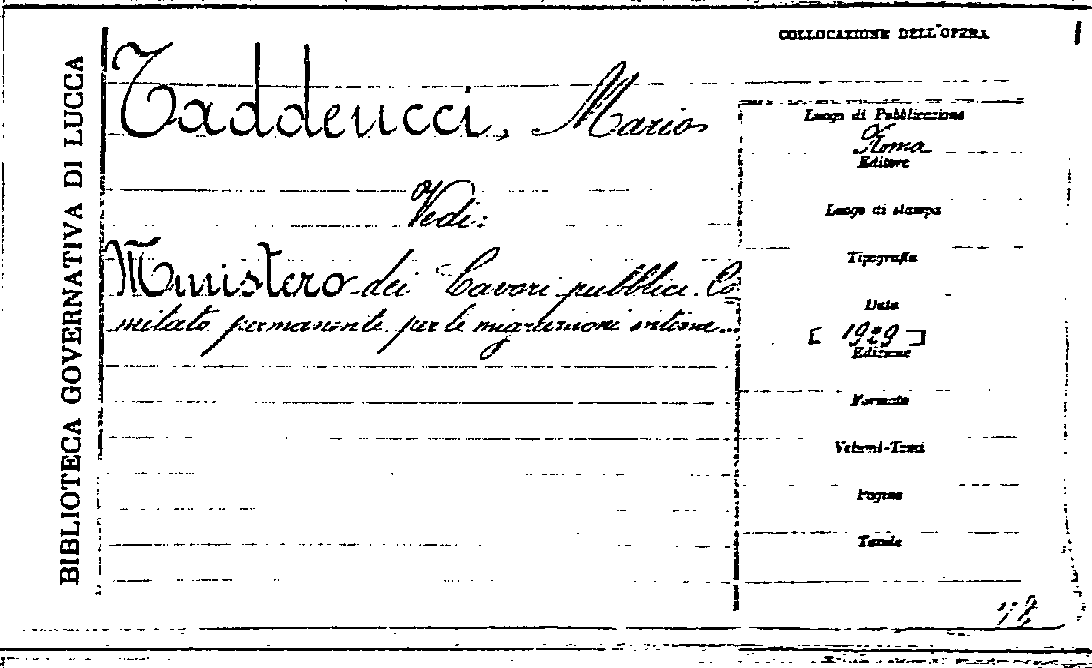 COLLOCAZIONE DELL'OPERA
BIBLIOTECA GOVERNATIVA DI LUCCA
Taddeucci, Mario
Vedi:
Ministero dei Lavori pubblici. Co
mitato permanente per le migrazioni interne...
Luogo di Pubblicazione
Roma
Editore
Luogo di stampa
Tipografia
Data
[ 1929 ]
Edizione
Formato
Volumi-Tomi
Pagine
Tavole